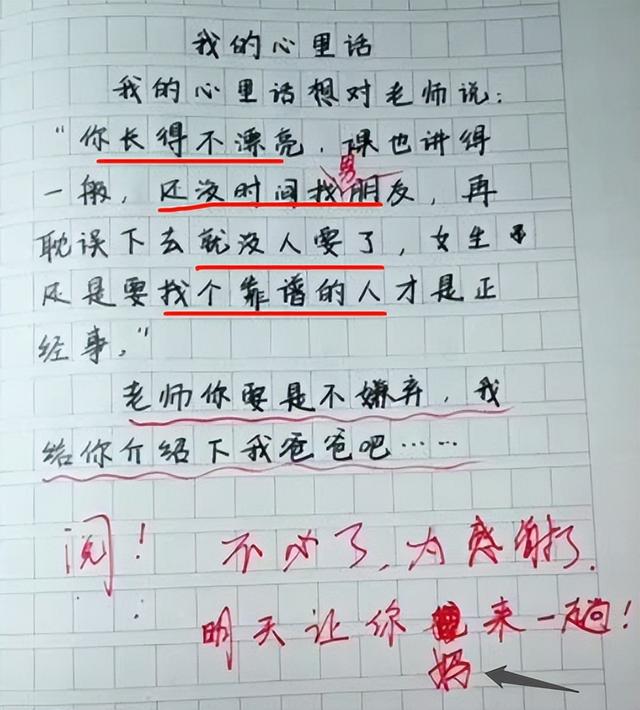 我的心里话
我的心里话想对老师说：
“你长得不漂亮，课也讲得
一般，还没时间找男朋友，再
耽误下去就没人要了，女生
还是要找个靠谱的人才是正
经事。”
老师你要是不嫌弃，我
给你介绍下我爸爸吧……
阅！ 不必了，感谢了。
明天让你妈来一趟！